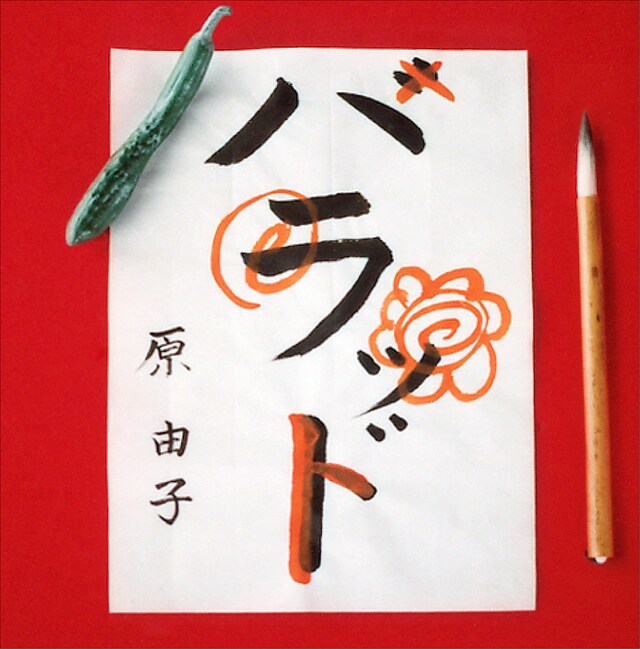 バラッド
原由子